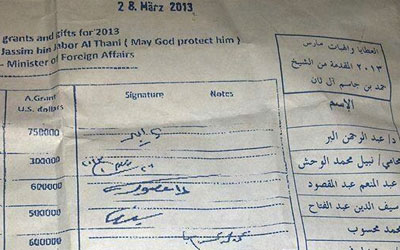 28. März 2013
grants and gifts for 2013
Jassim bin Jabor Al Thani ( May God protect him )
– Minister of Foreign Affairs
A.Grant
U.S. dollars
Signature
Notes
750000
300000
600000
500000
600000
العطايا والهبات مارس
٢٠١٣ المقدمة من الشيخ
حمد بن جاسم آل ثان
الإسم
د/ عبد الرحمن البر
محامي/ نبيل محمد الوحش
عبد المنعم عبد المقصود
سيف الدين عبد الفتاح
محمد محسوب